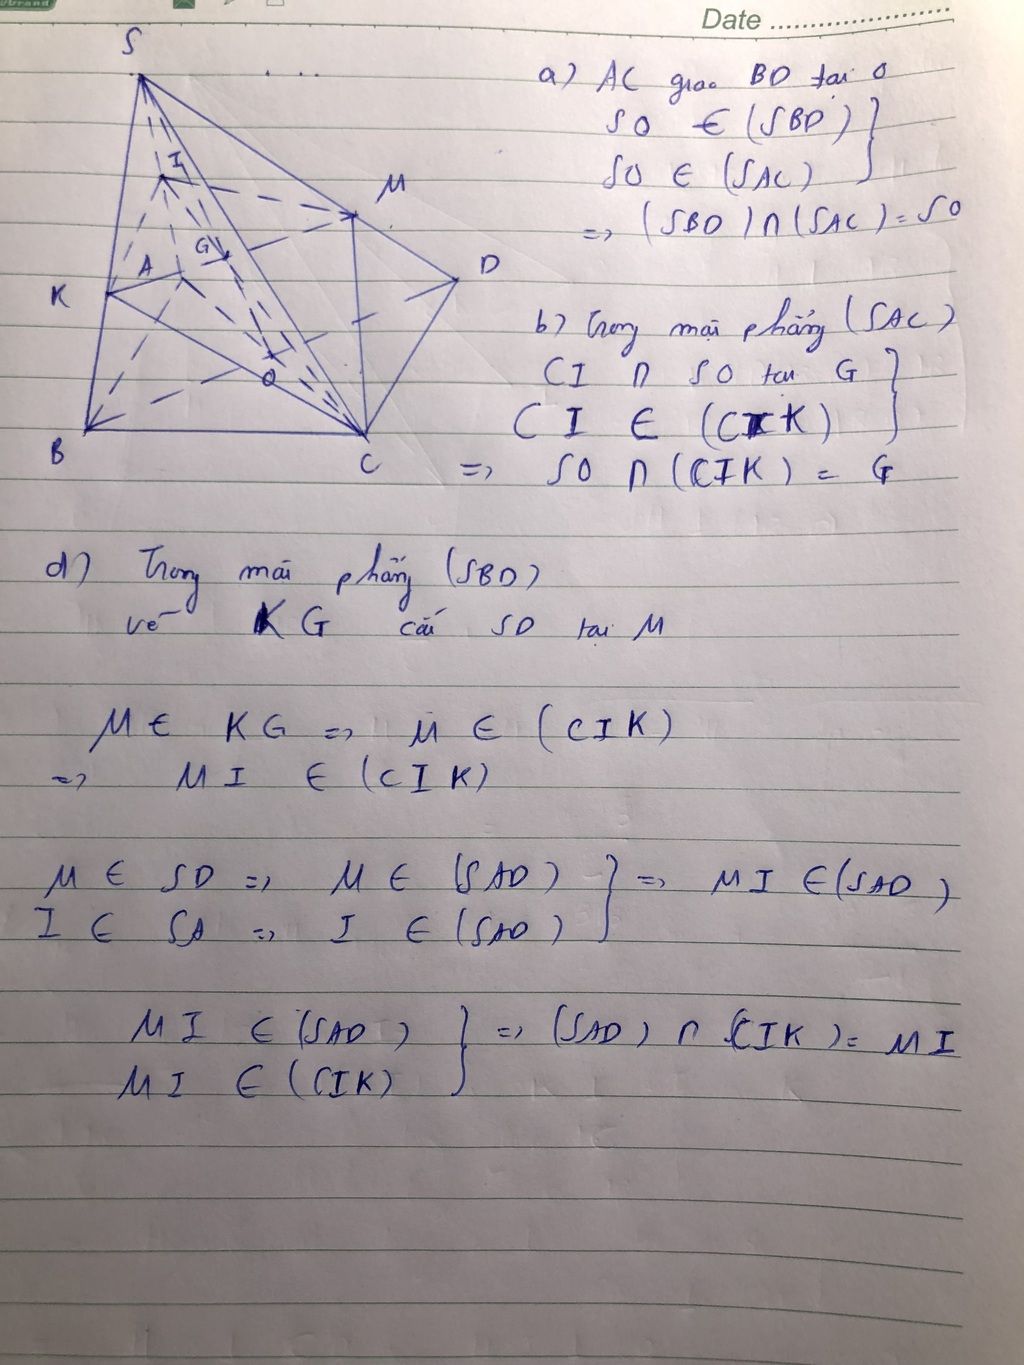 Date
S
I
M
G
A
D
K
O
B
C
a) AC giao BD tại O
SO ∈ (SBD)
SO ∈ (SAC)
=> (SBD) ∩ (SAC) = SO
b) Trong mặ phẳng (SAC)
CI ∩ SO tại G
CI ∈ (CIK)
=> SO ∩ (CIK) = G
d) Trong mặ phẳng (SBD)
vẽ KG cắ SD tại M
M ∈ KG => M ∈ (CIK)
=> MI ∈ (CIK)
M ∈ SD => M ∈ (SAD) => MI ∈ (SAD)
I ∈ SA => I ∈ (SAD)
MI ∈ (SAD) => (SAD) ∩ (CIK) = MI
MI ∈ (CIK)